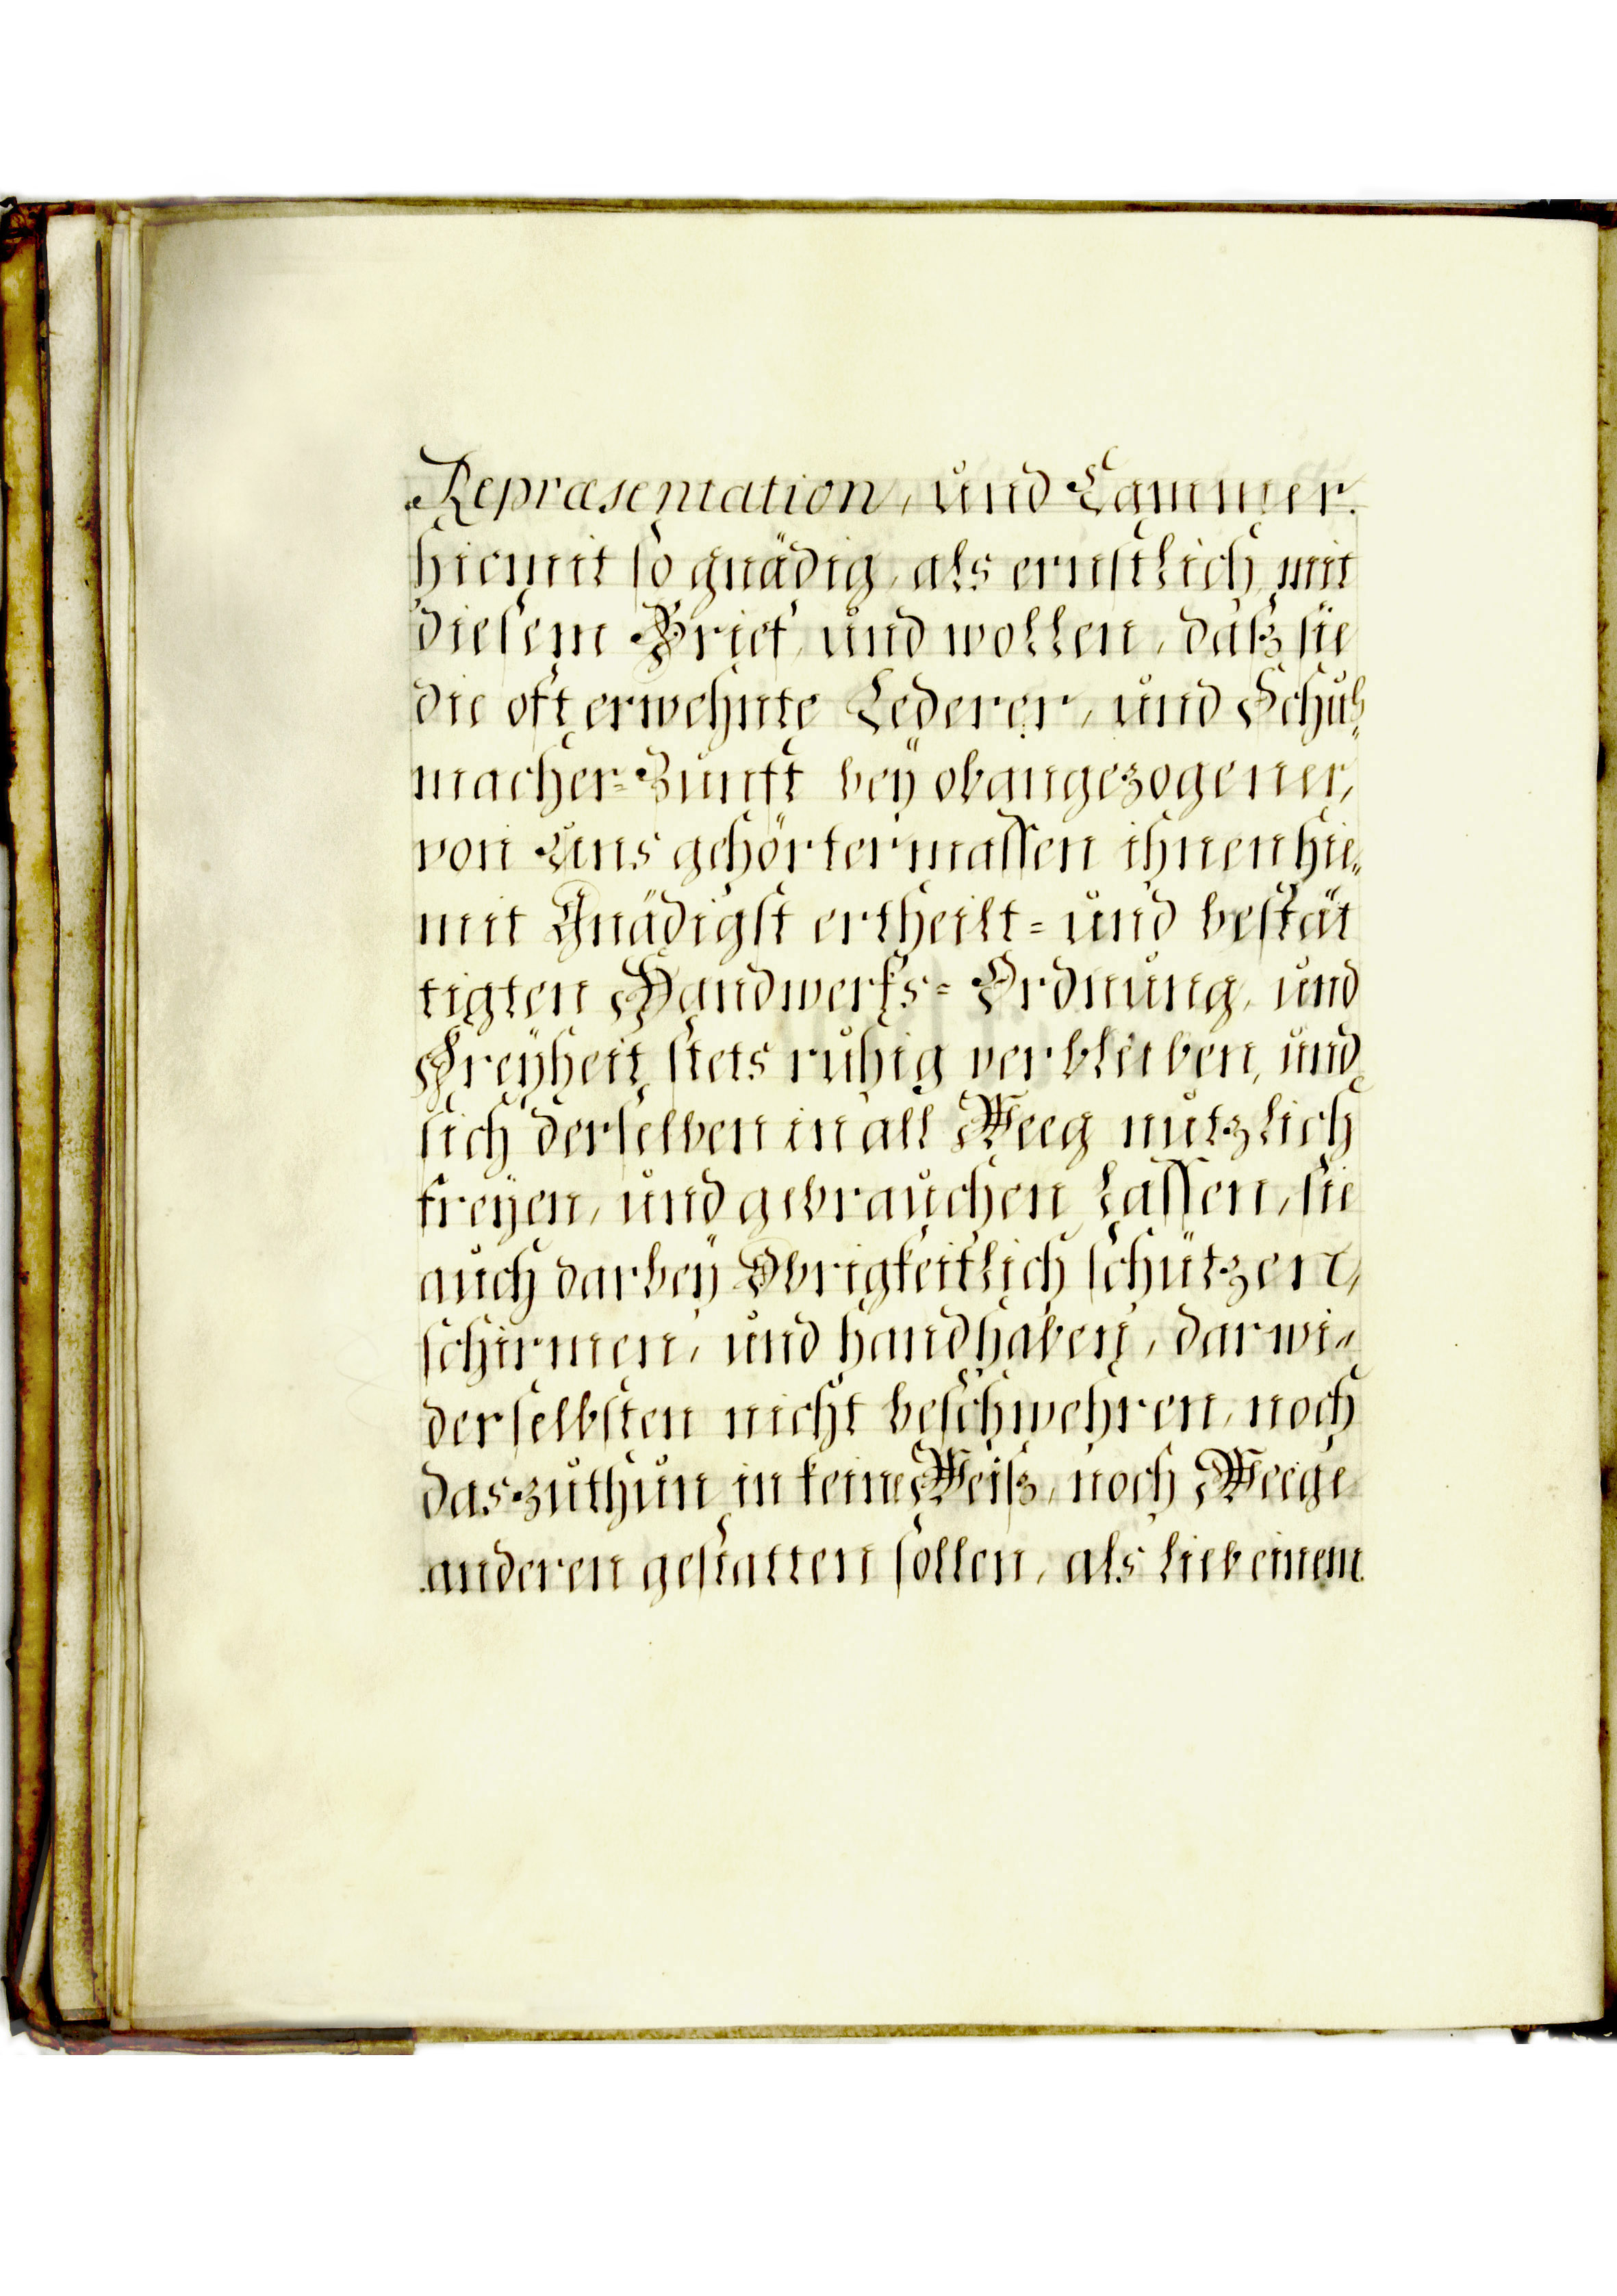 Repræsentation, und Cammer.
hiemit so gnädig, als ernstlich mit
diesem Brief, und wollen, daß sie
die oft erwehnte Lederer, und Schuh„
macher=Zunft bey obangezogener,
von Uns gehörtermassen ihnen hie„
mit Gnädigst ertheilt= und bestät
tigten Handwerks=Ordnung, und
Freyheit stets ruhig verbleiben, und
sich derselben in all Weeg nutzlich
freyen, und gebrauchen lassen, sie
auch darbey Obrigkeitlich schützen,
schirmen, und handhaben, darwi„
der selbsten nicht beschwehren, noch
das zuthun in keine Weiß, noch Weege
anderen gestatten sollen, als lieb einem